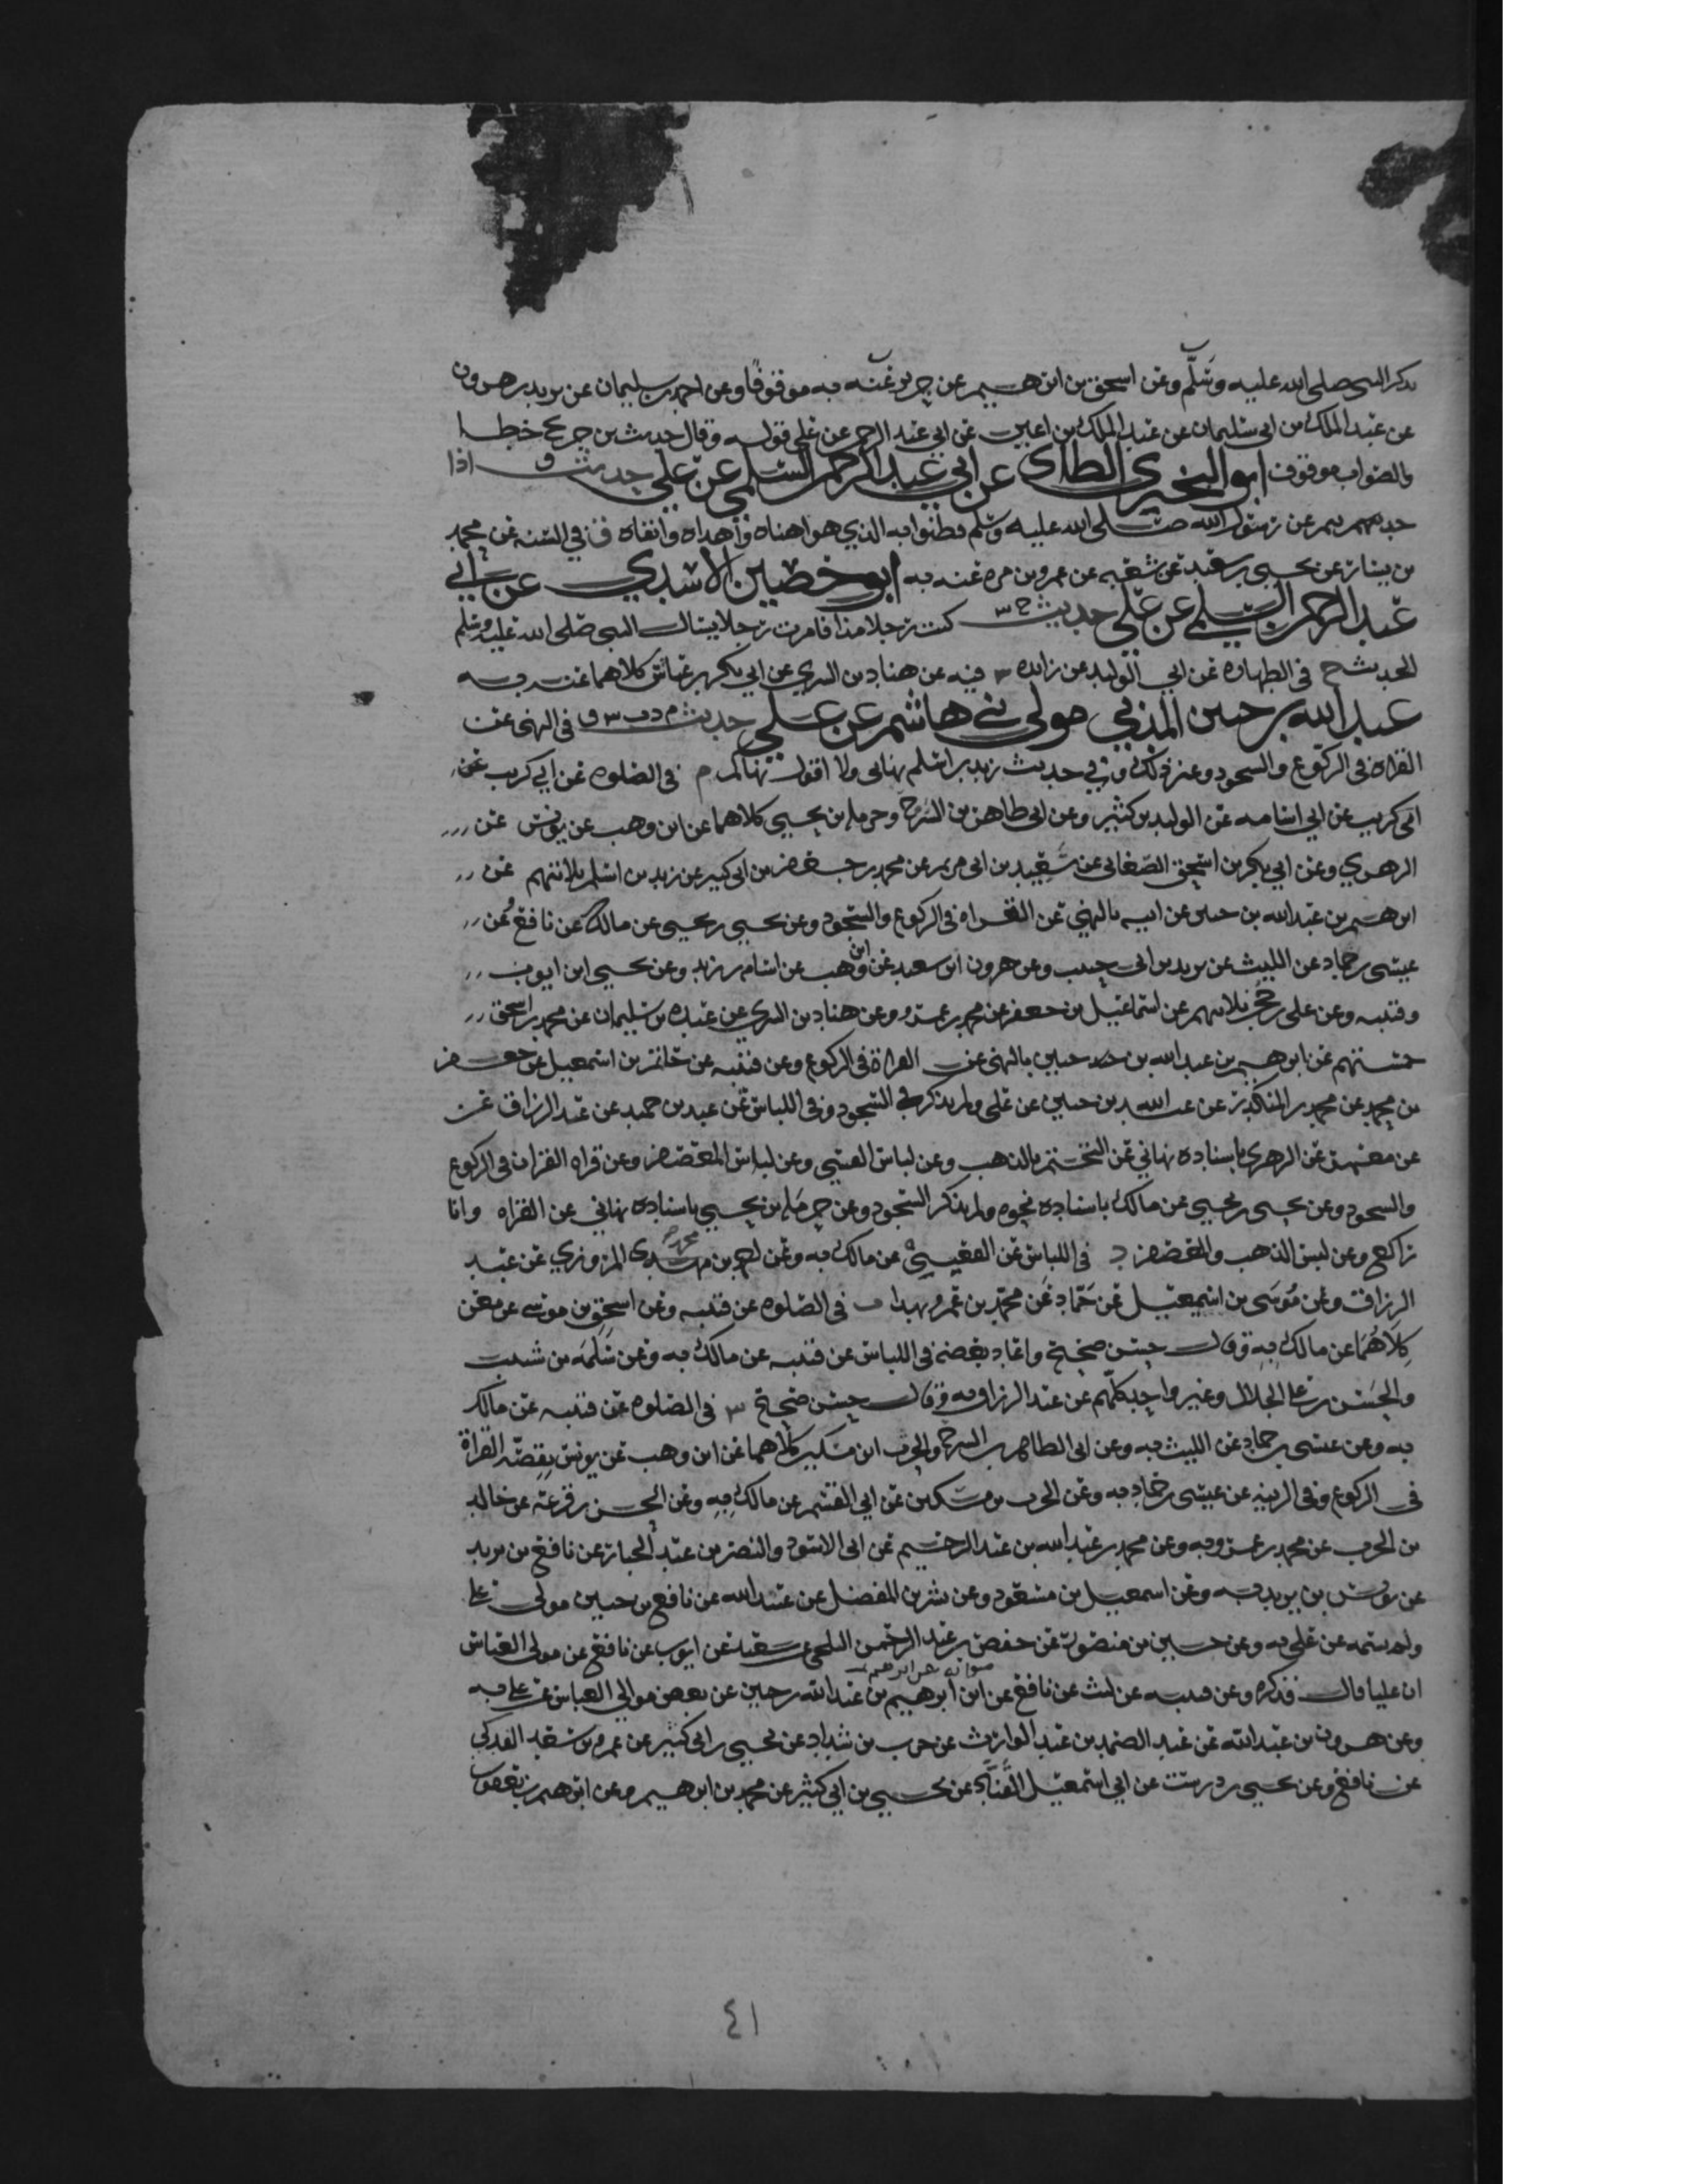 يذكر النبي صلى الله عليه وسلم وعن اسحق بن ابرهيم عن جرير عنه به موقوفا وعن احمد بن سليمان عن يزيد بن هرون
عن عبد الملك بن ابي سليمان عن عبد الملك بن اعين عن ابي عبد الرحمن عن علي قوله وقال حديث بن جريج خطا
والصواب موقوف ابو البختري الطائ عن ابي عبد الرحمن السلمي عن علي حديث ق اذا
حدثتم عن رسول الله صلى الله عليه وسلم فظنوا به الذي هو اهناه واهداه واتقاه ق في السنة عن محمد
بن بشار عن يحيى بن سعيد عن شعبه عن عمرو بن مره عنه به ابو حصين الاسدي عن ابي
عبد الرحمن السلمي عن علي حديث خ س كنت رجلا مذا فامرت رجلا يسال النبي صلى الله عليه وسلم
الحديث خ في الطهاره عن ابي الوليد عن زايده س فيه عن هناد بن السري عن ابي بكر بن عياش كلاهما عنه به
عبد الله بن حنين المدني مولى بني هاشم عن علي حديث م د ت س ق في النهي عن
القراة في الركوع والسجود وعن ذلك وفي حديث زيد بن اسلم نهاني ولا اقول نهاكم م في الصلوه عن ابي كريب عن
ابي كريب عن ابي اسامه عن الوليد بن كثير وعن ابي طاهر بن السرح وحرمله بن يحيى كلاهما عن ابن وهب عن يونس عن
الزهري وعن ابي بكر بن اسحق الصغاني عن سعيد بن ابي مريم عن محمد بن جعفر بن ابي كثير عن زيد بن اسلم ثلاثتهم عن
ابرهيم بن عبد الله بن حنين عن ابيه بالنهي عن القراه في الركوع والسجود وعن يحيى بن يحيى عن مالك عن نافع وعن
عيسى بن حماد عن الليث عن يزيد بن ابي حبيب وعن هرون ابن سعيد عن ابن وهب عن اسامه بن زيد وعن يحيى ابن ايوب
وقتيبه وعن علي بن حجر ثلاثتهم عن اسماعيل بن جعفر عن محمد بن عمرو وعن هناد بن السري عن عبده بن سليمان عن محمد بن اسحق
خمستهم عن ابرهيم بن عبد الله بن حنين بالنهي عن القراة في الركوع وعن قتيبه عن حاتم بن اسمعيل عن جعفر
بن محمد عن محمد بن المنكدر عن عبد الله بن حنين عن علي ولم يذكر في السجود وفي اللباس عن عبد بن حميد عن عبد الرزاق عن
عن معمر عن الزهري باسناده نهاني عن التختم بالذهب وعن لباس القسي وعن لباس المعصفر وعن قراه القران في الركوع
والسجود وعن يحيى بن يحيى عن مالك باسناده نحوه ولم يذكر السجود وعن حرمله بن يحيى باسناده نهاني عن القراه وانا
راكع وعن لبس الذهب والمعصفر د في اللباس عن القعنبي عن مالك به وعن احمد بن محمد المروزي عن عبد
الرزاق وعن موسى بن اسمعيل عن حماد عن محمد بن عمرو بهذا ت في الصلوه عن قتيبه وعن اسحق بن موسى عن معن
كلاهما عن مالك به وقال حسن صحيح واعاد بعضه في اللباس عن قتيبه عن مالك به وعن سلمه بن شبيب
والحسن بن علي الخلال وغير واحد كلهم عن عبد الرزاق به وقال حسن صحيح س في الصلوه عن قتيبه عن مالك
به وعن عيسى بن حماد عن الليث به وعن ابي الطاهر بن السرح والحرث ابن مسكين كلاهما عن ابن وهب عن يونس بقصة القراة
في الركوع وفي الزينه عن عيسى بن حماد به وعن الحرث بن مسكين عن ابي القسم عن مالك به وعن الحسن بن قزعه عن خالد
بن الحرث عن محمد بن عمرو به وعن محمد بن عبد الله بن عبد الرحيم عن ابي الاسود والنضر بن عبد الجبار عن نافع بن يزيد
عن يونس بن يزيد به وعن اسمعيل بن مسعود وعن بشر بن المفضل عن عبيد الله عن نافع بن حنين مولى علي
ولم يسمه عن علي به وعن حسين بن منصور عن حفص بن عبد الرحمن البلخي عن سعيد عن ايوب عن نافع عن مولى العباس
ان عليا قال فذكره وعن قتيبه عن ليث عن نافع عن ابن ابرهيم بن عبد الله بن حنين عن بعض موالي العباس عن علي به
وعن هرون بن عبد الله عن عبد الصمد بن عبد الوارث عن حرب بن شداد عن يحيى بن ابي كثير عن عمرو بن سعد الفدكي
عن نافع وعن يحيى بن درست عن ابي اسمعيل القناد عن يحيى بن ابي كثير عن محمد بن ابرهيم وعن ابرهيم بن يعقوب
٤١